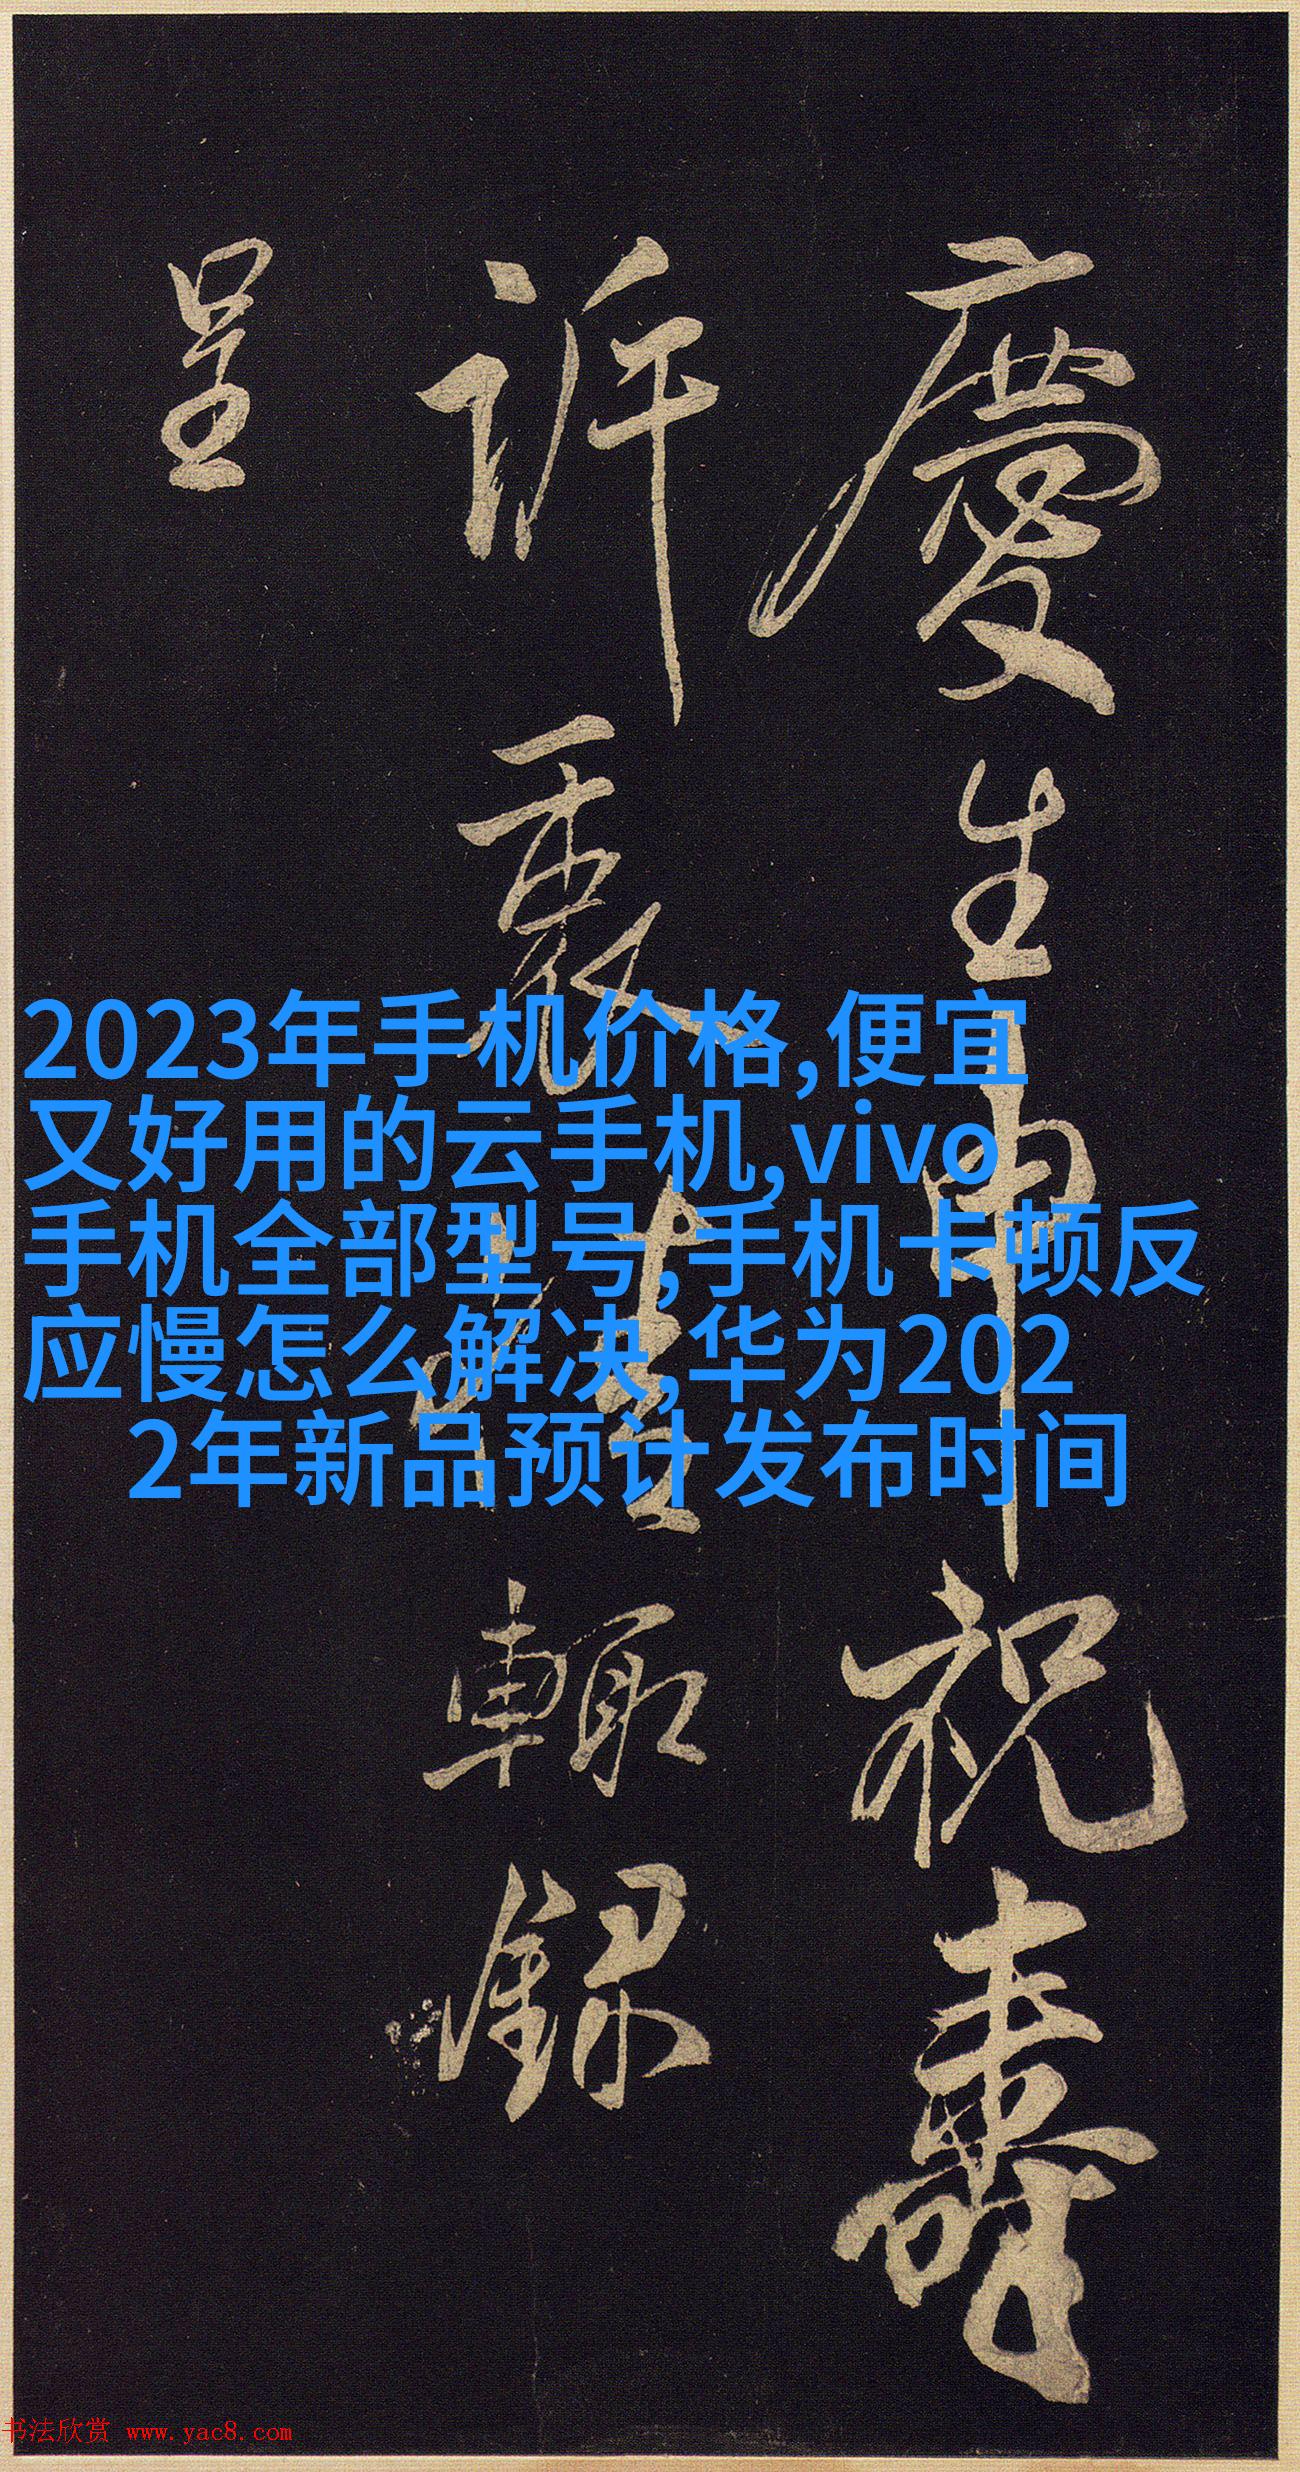 慶生申祝壽
訢衷情輒録
呈
2023年手机价格,便宜
又好用的云手机,vivo
手机全部型号,手机卡顿反
应慢怎么解决,华为202
2年新品预计发布时间
书法欣赏 www.yac8.com